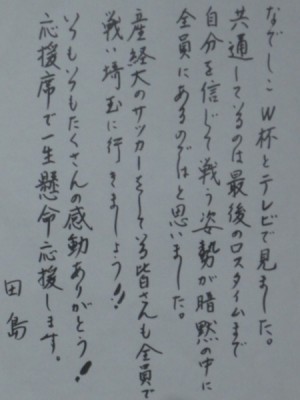 なでしこW杯とテレビで見ました。
共通しているのは最後のロスタイムまで
自分を信じて戦う姿勢が暗黙の中に
全員にあるのではと思いました。
産経大のサッカーをしている皆さんも全員で
戦い埼玉に行きましょう!!
いつもいつもたくさんの感動ありがとう!
応援席で一生懸命応援します。
田島